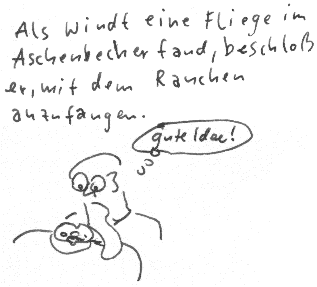 Als Windt eine Fliege im
Aschenbecher fand, beschloß
er, mit dem Rauchen
anzufangen.
gute Idee!